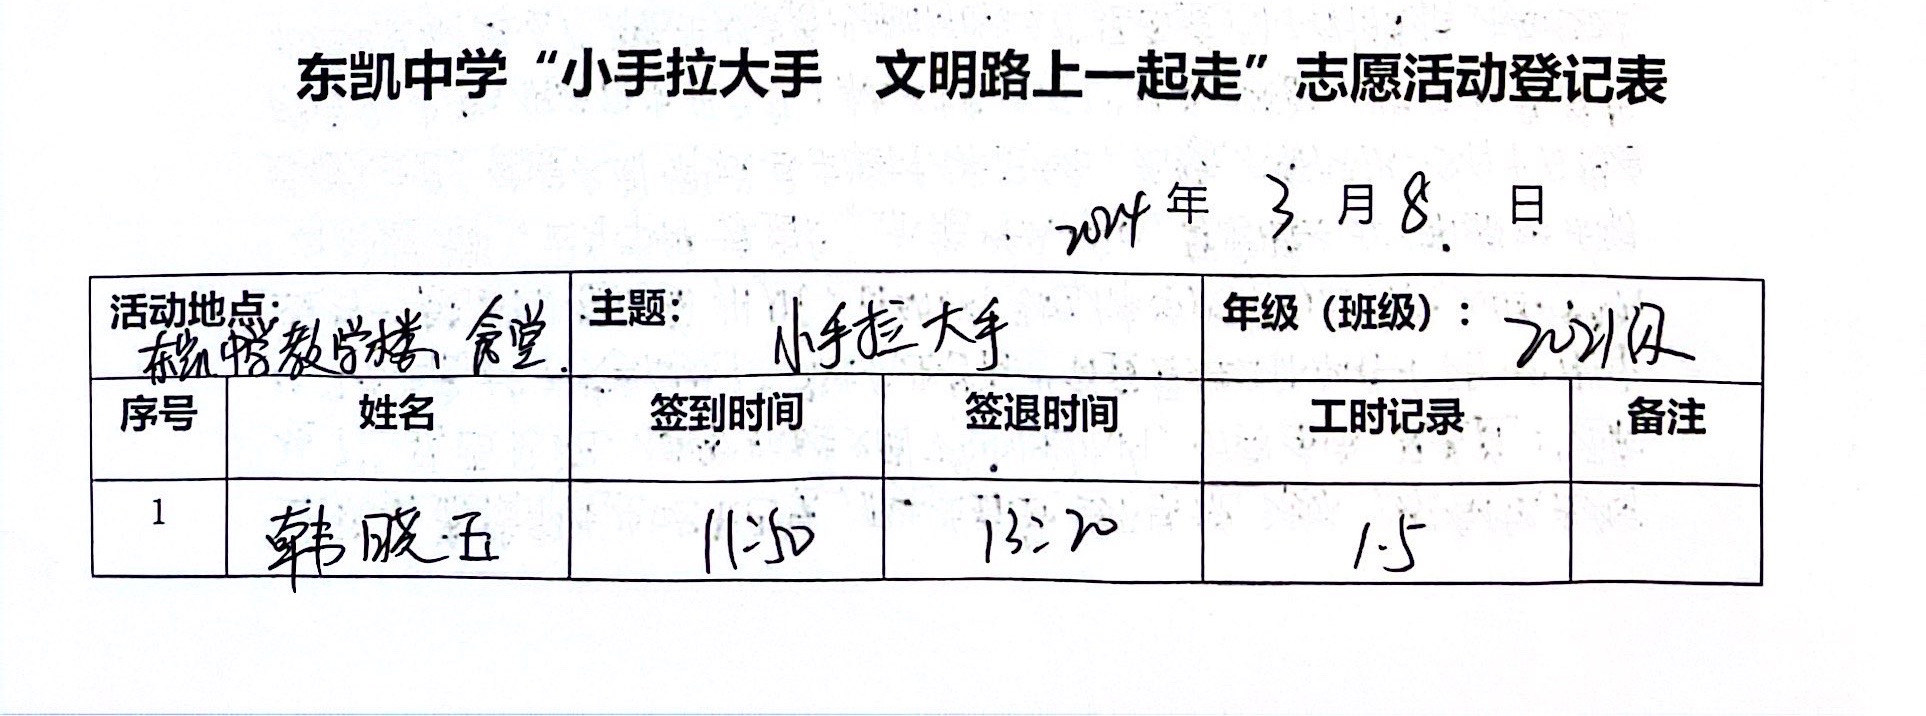 东凯中学“小手拉大手 文明路上一起走”志愿活动登记表
2024年 3 月 8 日
活动地点: 东凯中学教学楼、食堂. 主题: 小手拉大手 年级（班级）: 2021级
序号 姓名 签到时间 签退时间 工时记录 备注
1 韩晓五 11:50 13:20 1.5